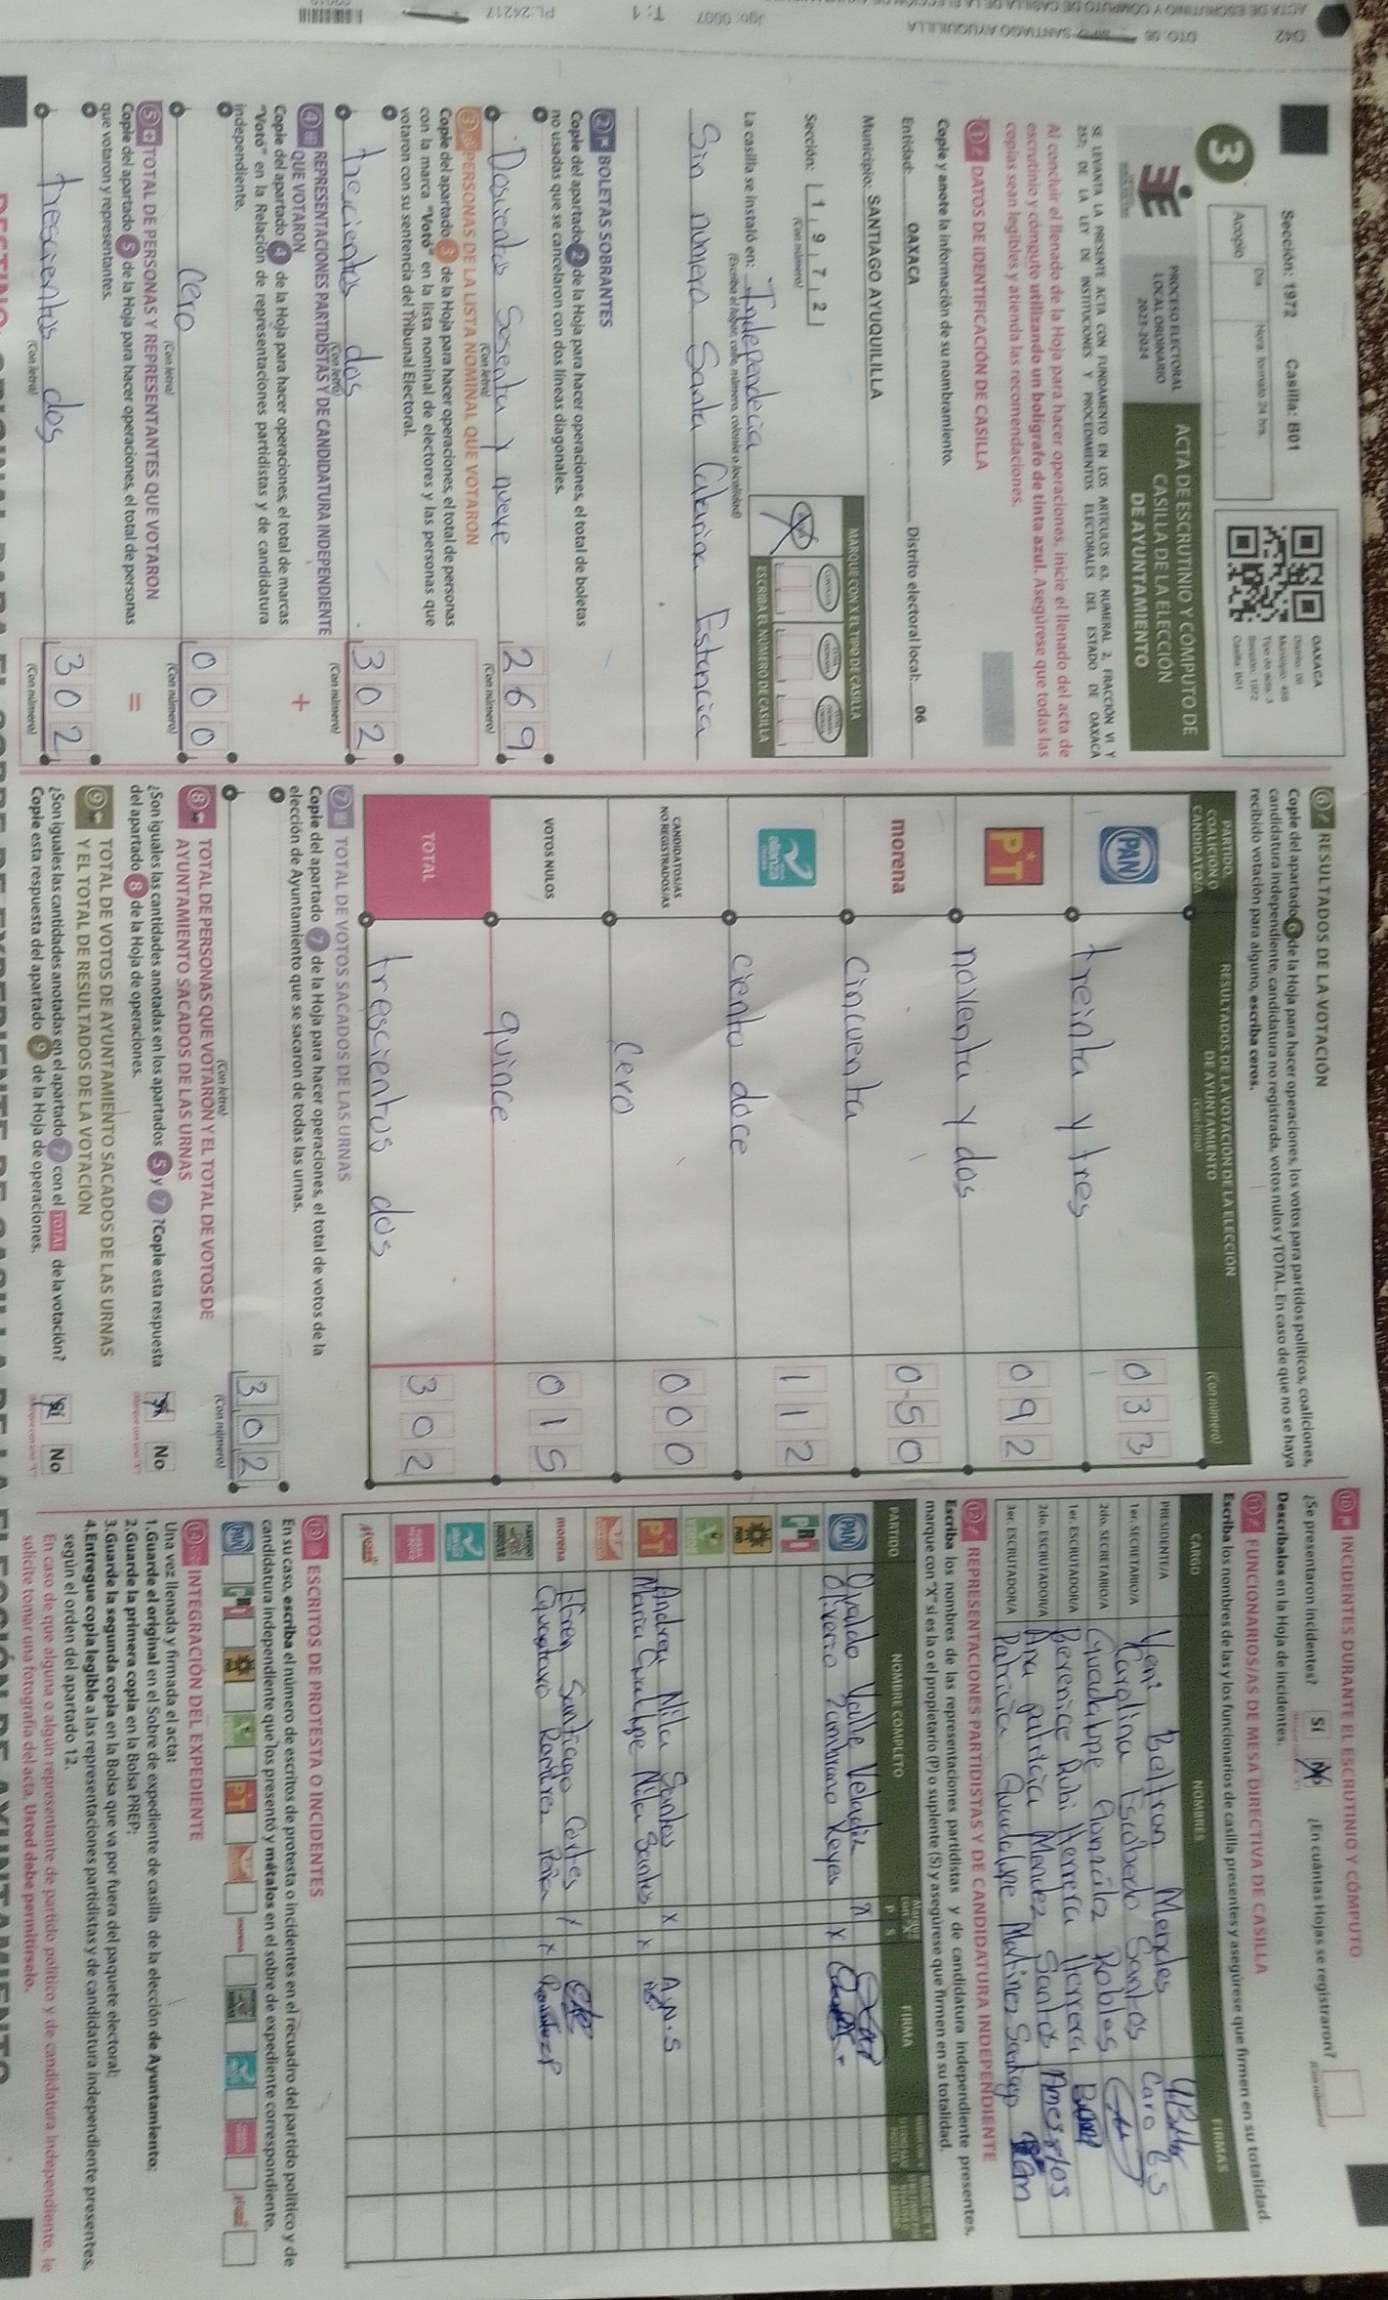 Sección: 1972 Casilla: B01
Día Hora formato 24 hrs.
Acopio
3
OAXACA
Distrito: 06
Municipio: 458
Tipo de acta: 3
Sección: 1972
Casilla: B01
PROCESO ELECTORAL
LOCAL ORDINARIO
2023-2024
ACTA DE ESCRUTINIO Y CÓMPUTO DE
CASILLA DE LA ELECCIÓN
DE AYUNTAMIENTO
SE LEVANTA LA PRESENTE ACTA CON FUNDAMENTO EN LOS ARTÍCULOS 63, NUMERAL 2, FRACCIÓN VI Y
252; DE LA LEY DE INSTITUCIONES Y PROCEDIMIENTOS ELECTORALES DEL ESTADO DE OAXACA
Al concluir el llenado de la Hoja para hacer operaciones, inicie el llenado del acta de
escrutinio y cómputo utilizando un bolígrafo de tinta azul. Asegúrese que todas las
copias sean legibles y atienda las recomendaciones.
1 DATOS DE IDENTIFICACIÓN DE CASILLA
Copie y anote la información de su nombramiento.
Entidad: OAXACA Distrito electoral local: 06
Municipio: SANTIAGO AYUQUILILLA
Sección: 1 9 7 2
(Con número)
MARQUE CON X EL TIPO DE CASILLA
ESCRIBA EL NÚMERO DE CASILLA
La casilla se instaló en: Independecia
(Escriba el lugar, calle, número, colonia o localidad)
Sin numero Santa Catarina Estancia
2 BOLETAS SOBRANTES
Copie del apartado 2 de la Hoja para hacer operaciones, el total de boletas
no usadas que se cancelaron con dos líneas diagonales.
Doscientos Sesenta y nueve 2 6 9
(Con letra) (Con número)
3 PERSONAS DE LA LISTA NOMINAL QUE VOTARON
Copie del apartado 3 de la Hoja para hacer operaciones, el total de personas
con la marca "Votó" en la lista nominal de electores y las personas que
votaron con su sentencia del Tribunal Electoral.
trecientos dos 3 0 2
(Con letra) (Con número)
4 REPRESENTACIONES PARTIDISTAS Y DE CANDIDATURA INDEPENDIENTE
QUE VOTARON +
Copie del apartado 4 de la Hoja para hacer operaciones, el total de marcas
"Votó" en la Relación de representaciones partidistas y de candidatura
independiente.
Cero 0 0 0
(Con letra) (Con número)
5 TOTAL DE PERSONAS Y REPRESENTANTES QUE VOTARON =
Copie del apartado 5 de la Hoja para hacer operaciones, el total de personas
que votaron y representantes.
trescientos dos 3 0 2
(Con letra) (Con número)
6 RESULTADOS DE LA VOTACIÓN
Copie del apartado 6 de la Hoja para hacer operaciones, los votos para partidos políticos, coaliciones,
candidatura independiente, candidatura no registrada, votos nulos y TOTAL. En caso de que no se haya
recibido votación para alguno, escriba ceros.
PARTIDO,
COALICIÓN O
CANDIDATO/A
RESULTADOS DE LA VOTACIÓN DE LA ELECCIÓN
DE AYUNTAMIENTO
(Con letra) (Con número)
PAN treinta y tres 0 3 3
PT noventa y dos 0 9 2
morena Cincuenta 0 5 0
nueva alianza OAXACA ciento doce 1 1 2
CANDIDATOS/AS
NO REGISTRADOS/AS Cero 0 0 0
VOTOS NULOS quince 0 1 5
TOTAL trescientos dos 3 0 2
7 TOTAL DE VOTOS SACADOS DE LAS URNAS
Copie del apartado 7 de la Hoja para hacer operaciones, el total de votos de la
elección de Ayuntamiento que se sacaron de todas las urnas.
3 0 2
(Con letra) (Con número)
8 TOTAL DE PERSONAS QUE VOTARON Y EL TOTAL DE VOTOS DE
AYUNTAMIENTO SACADOS DE LAS URNAS
¿Son iguales las cantidades anotadas en los apartados 5 y 7 ?Copie esta respuesta
del apartado 8 de la Hoja de operaciones. Sí No
9 TOTAL DE VOTOS DE AYUNTAMIENTO SACADOS DE LAS URNAS
Y EL TOTAL DE RESULTADOS DE LA VOTACIÓN
¿Son iguales las cantidades anotadas en el apartado 7 con el TOTAL de la votación?
Copie esta respuesta del apartado 9 de la Hoja de operaciones. Sí No
10 INCIDENTES DURANTE EL ESCRUTINIO Y CÓMPUTO
¿Se presentaron incidentes? Sí No ¿En cuántas Hojas se registraron?
Descríbalos en la Hoja de incidentes.
11 FUNCIONARIOS/AS DE MESA DIRECTIVA DE CASILLA
Escriba los nombres de las y los funcionarios de casilla presentes y asegúrese que firmen en su totalidad.
CARGO NOMBRES FIRMAS
PRESIDENTE/A Yeni Beltron Mendes
1er. SECRETARIO/A Carolina Escobedo Santos Caro ES
2do. SECRETARIO/A Guadalupe González Robles
1er. ESCRUTADOR/A Berenice Rubi Herrera Herrera
2do. ESCRUTADOR/A Ana patricia Mendez Santos
3er. ESCRUTADOR/A Patricia Guadalupe Martinez Santiago
12 REPRESENTACIONES PARTIDISTAS Y DE CANDIDATURA INDEPENDIENTE
Escriba los nombres de las representaciones partidistas y de candidatura independiente presentes,
marque con "X" si es la o el propietario (P) o suplente (S) y asegúrese que firmen en su totalidad.
PARTIDO NOMBRE COMPLETO Marque con "X" P S FIRMA
PAN Ovaldo Valle Veladiz x
Oliverio Zambrano Reyes x
PRI
PRD
VERDE
PT Andrea Nila Santos X A.N.S
Maria Guadalupe Nila Santos x
morena Efren Santiago Cortes x
Guustavo Ramires Peña x
13 ESCRITOS DE PROTESTA O INCIDENTES
En su caso, escriba el número de escritos de protesta o incidentes en el recuadro del partido político y de
candidatura independiente que los presentó y métalos en el sobre de expediente correspondiente.
14 INTEGRACIÓN DEL EXPEDIENTE
Una vez llenada y firmada el acta:
1.Guarde el original en el Sobre de expediente de casilla de la elección de Ayuntamiento;
2.Guarde la primera copia en la Bolsa PREP;
3.Guarde la segunda copia en la Bolsa que va por fuera del paquete electoral;
4.Entregue copia legible a las representaciones partidistas y de candidatura independiente presentes,
según el orden del apartado 12.
En caso de que alguna o algún representante de partido político y de candidatura independiente, le
solicite tomar una fotografía del acta, Usted debe permitírselo.
042 DTO. 06 SANTIAGO AYUQUILILLA
Jgo: 0007 T: 1 PL:24217